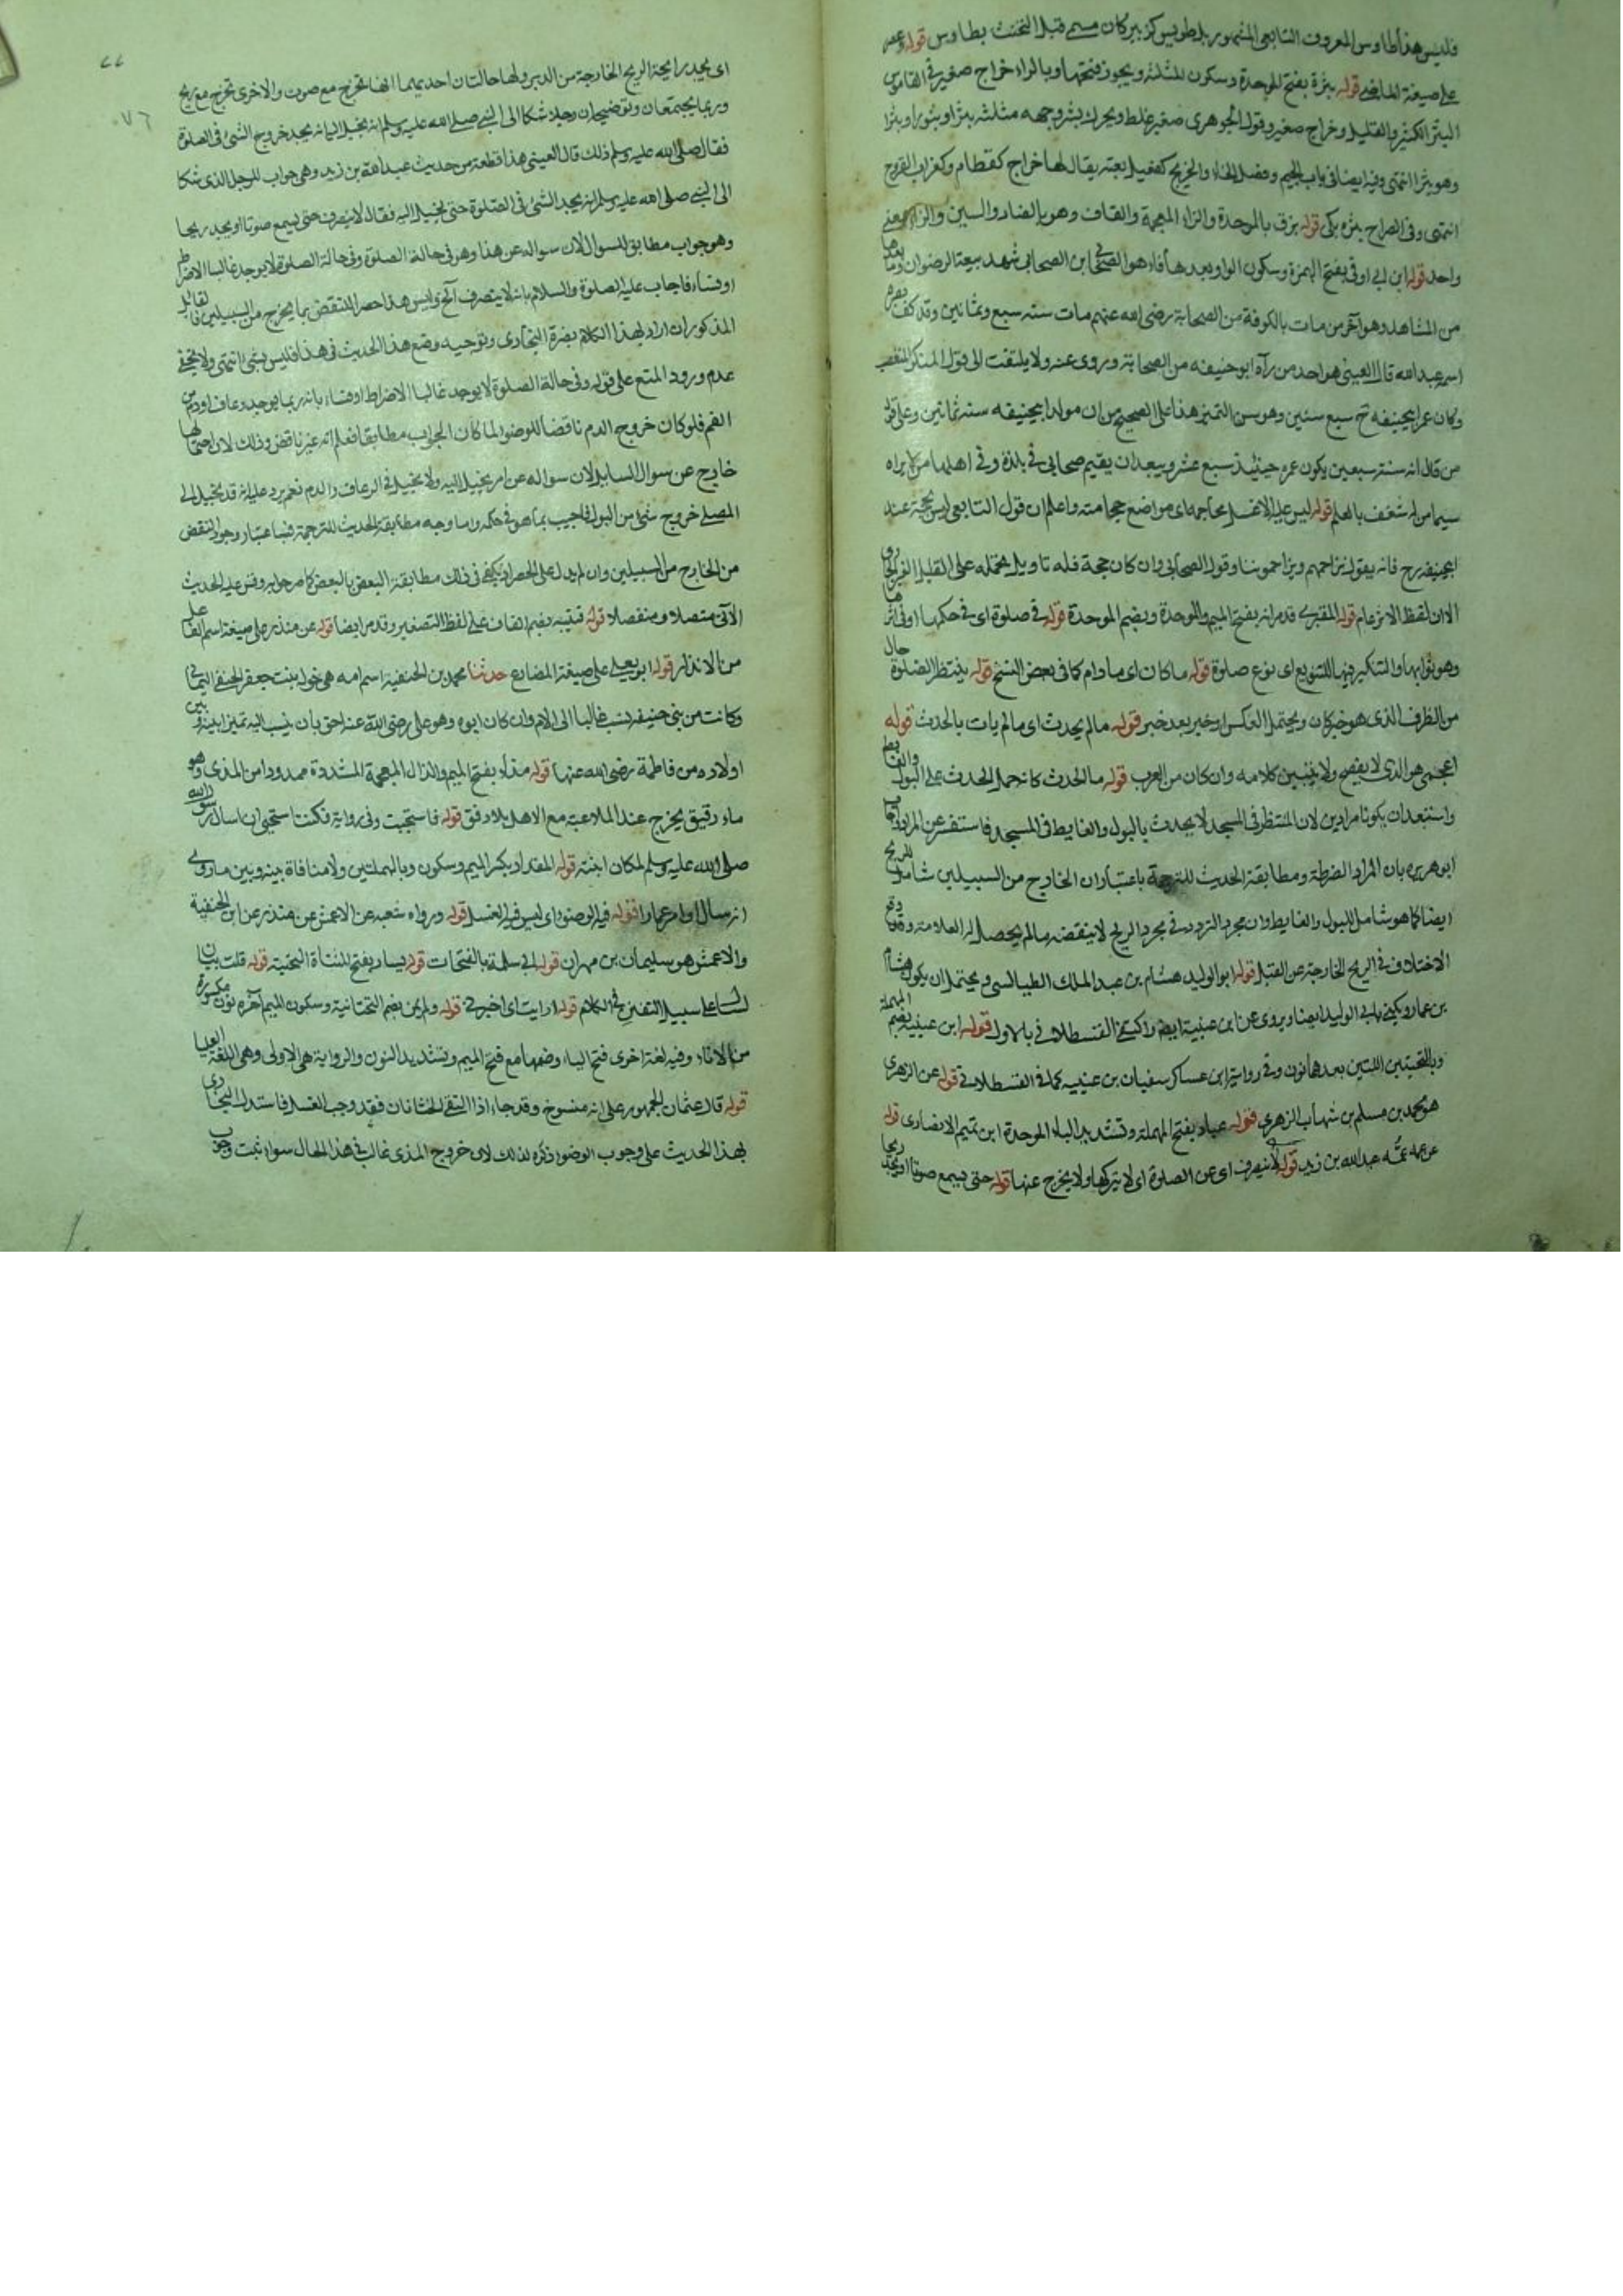 فليس هذا طاوس المعروف التابعي المشهور بل طويس كزبير كان يسمى قبل التخنث بطاوس قوله وعصر
على صيغة الماضي قوله بثرة بفتح الموحدة وسكون المثلثة ويجوز فتحها وبالراء خراج صغير في القاموس
البثر الكثير والقليل وخراج صغير وقول الجوهري صغير غلط ويحرك بثر وجهه مثلثه بثرا وبثورا وبثرا
وهو بثر انتهى وفيه ايضا في باب الجيم وفصل الخاء والخريج كقفيل لعبة يقال لها خراج كقطام وكغراب القروح
انتهى وفي الصراح بثره يكي قوله بزق بالموحدة والزاء المعجمة والقاف وهو بالصاد والسين والزاء بمعنى
واحد قوله ابن ابي اوفى بفتح الهمزة وسكون الواو وبعدها فاء هو الصحابي ابن الصحابي شهد بيعة الرضوان وما بعدها
من المشاهد وهو آخر من مات بالكوفة من الصحابة رضي الله عنهم مات سنة سبع وثمانين وقد كف بصره
اسمه عبد الله قال العيني هو احد من رآه ابو حنيفه من الصحابة وروى عنه ولا يلتفت الى قول المنكر المتعصب
وكان عمر ابيحنيفه ح سبع سنين وهو سن التميز هذا على الصحيح من ان مولد ابيحنيفه سنة ثمانين وعلى قول
من قال انه سنة سبعين يكون عمره حينئذ سبع عشر ويبعد ان يقيم صحابي في بلدة وفي اهلها من لا يراه
سيما من له شغف بالعلم قوله ليس عليه الا غسل محاجمه اي مواضع حجامته واعلم ان قول التابعي ليس بحجة عند
ابيحنيفه رح فانه يقول نزاحمهم ويزاحموننا وقول الصحابي وان كان حجة فله تاويل محتمله على القليل الغير الجاري
الا ان لفظ الاثر عام قوله المقبري قد مر انه بفتح الميم والموحدة وبضم الموحدة قوله في صلوة اي في حكمها او في اثرها
وهو ثوابها والتنكير فيها للتنويع اي نوع صلوة قوله ما كان اي ما دام كما في بعض النسخ قوله ينتظر الصلوة حال
من الظرف الذي هو خبر كان ويحتمل العكس او خبر بعد خبر قوله ما لم يحدث اي ما لم يات بالحدث قوله
اعجمي هو الذي لا يفصح ولا يتبين كلامه وان كان من العرب قوله ما الحدث كانه حمل الحدث على البول والغايط
واستبعد ان يكونا مرادين لان المنتظر في المسجد لا يحدث بالبول والغايط في المسجد فاستفسر عن المراد فاجاب
ابو هريره بان المراد الضرطة ومطابقة الحديث للترجمة باعتبار ان الخارج من السبيلين شامل للريح
ايضا كما هو شامل للبول والغايط وان مجرد التردد في مجرد الريح لا ينقضه ما لم يحصل له العلامة وقد وقع
الاختلاف في الريح الخارجة عن القبل قوله ابو الوليد هشام بن عبد الملك الطيالسي ويحتمل ان يكون هشام
بن عمار ويكنى بابي الوليد ايضا ويروى عن ابن عيينة ايضا واكتفى القسطلاني بالاول قوله ابن عيينة بضم المهملة
وبالتحتيتين اللتين بعدهما نون وفي رواية ابن عساكر سفيان بن عيينه كما في القسطلاني قوله عن الزهري
هو محمد بن مسلم بن شهاب الزهري قوله عباد بفتح المهملة وتشديد الباء الموحدة ابن تميم الانصاري قوله
عن عمه عمّه عبد الله بن زيد قوله لا ينصرف اي عن الصلوة اي لا يتركها ولا يخرج عنها قوله حتى يسمع صوتا او يجد ريحا
٧٧
٧٦
اي يجد رايحة الريح الخارجة من الدبر ولها حالتان احديهما انها تخرج مع صوت والاخرى تخرج مع ريح
وربما يجتمعان وتوضيحه ان رجلا شكا الى النبي صلى الله عليه وسلم انه يخيل اليه انه يجد خروج الشئ في الصلوة
فقال صلى الله عليه وسلم ذلك قال العيني هذا قطعة من حديث عبد الله بن زيد وهي جواب للرجل الذي شكا
الى النبي صلى الله عليه وسلم انه يجد الشئ في الصلوة حتى يخيل اليه فقال لا ينصرف حتى يسمع صوتا او يجد ريحا
وهو جواب مطابق للسوال لان سواله عن هذا وهو في حالة الصلوة وفي حالة الصلوة لا يوجد غالبا الا ضراط
او فساء فاجاب عليه الصلوة والسلام بانه لا ينصرف آلخ وليس هذا حصر المنتقض بما يخرج من السبيلين فالقائل
المذكور ان اراد بهذا الكلام نصرة البخاري وتوجيه وضع هذا الحديث في هذا فليس بشئ انتهى ولا يخفى
عدم ورود المنع على قوله وفي حالة الصلوة لا يوجد غالبا الا ضراط او فساء بانه ربما يوجد رعاف او دم من
الفم فلو كان خروج الدم ناقضا للوضوء لما كان الجواب مطابقا فعلم انه غير ناقض وذلك لان احتمالها
خارج عن سوال السايل لان سواله عن امر يخيل اليه ولا تخييل في الرعاف والدم نعم يرد عليه انه قد يخيل الى
المصلي خروج شئ من البول فاجيب بما هو في حكمه واما وجه مطابقة الحديث للترجمة فباعتبار وجود النقض
من الخارج من السبيلين وان لم يدل على الحصر اذ يكفي في ذلك مطابقة البعض بالبعض كما مر جوابه وقس عليه الحديث
الآتي متصلا ومنفصلا قوله قتيبه بضم القاف على لفظ التصغير وقد مر ايضا قوله عن منذر على صيغة اسم الفاعل
من الانذار قوله ابو يعلى على صيغة المضارع حدثنا محمد بن الحنفية اسم امه هي خولة بنت جعفر الحنفي اليمامي
وكانت من بني حنيفه نسب غالبا الى الام وان كان ابوه وهو علي رضي الله عنه احق بان ينسب اليه تميزا بينه وبين
اولاده من فاطمة رضي الله عنها قوله مذاء بفتح الميم والذال المعجمة المشددة ممدودا من المذي وهو
ماء رقيق يخرج عند الملاعبة مع الاهل بلا دفق قوله فاستحييت وفي رواية فكنت استحيي ان اسال رسول الله
صلى الله عليه وسلم لمكان ابنته قوله المقداد بكسر الميم وسكون وبالمهملتين ولا منافاة بينه وبين ما روي
انه سال او امر عمارا قوله فيه الوضوء اي ليس فيه الغسل قوله ورواه شعبه عن الاعمش عن منذر عن ابن الحنفية
والاعمش هو سليمان بن مهران قوله ابي سلمة بالفتحات قوله يسار بفتح المثناة التحتية قوله قلت بيان
لسا على سبيل التفنن في الكلام قوله ارايت اي اخبرني قوله ولم يمن بضم التحتانية وسكون الميم آخره نون مكسورة
من الامناء وفيه لغة اخرى فتح الياء وضمها مع فتح الميم وتشديد النون والرواية هي الاولى وهي اللغة العليا
قوله قال عثمان الجمهور على انه منسوخ وقد جاء اذا التقى الختانان فقد وجب الغسل فاستدل البخاري
بهذا الحديث على وجوب الوضوء ذكره لذلك لان خروج المذي غالب في هذا الحال سواء ثبت وجوب